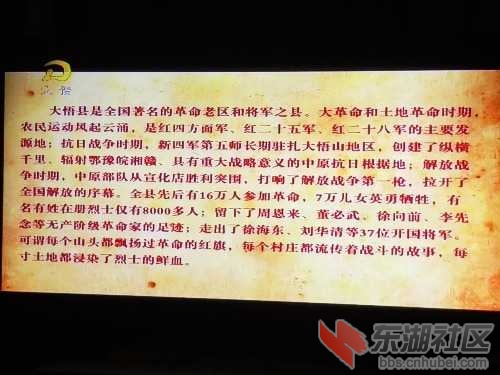 大悟县是全国著名的革命老区和将军之县。大革命和土地革命时期，
农民运动风起云涌，是红四方面军、红二十五军、红二十八军的主要发
源地；抗日战争时期，新四军第五师长期驻扎大悟山地区，创建了纵横
千里、辐射鄂豫皖湘赣、具有重大战略意义的中原抗日根据地；解放战
争时期，中原部队从宣化店胜利突围，打响了解放战争第一枪，拉开了
全国解放的序幕。全县先后有16万人参加革命，7万儿女英勇牺牲，有
名有姓在册烈士仅有8000多人；留下了周恩来、董必武、徐向前、李先
念等无产阶级革命家的足迹；走出了徐海东、刘华清等37位开国将军。
可谓每个山头都飘扬过革命的红旗，每个村庄都流传着战斗的故事，每
寸土地都浸染了烈士的鲜血。
东湖社区
bbs.cnhubei.com